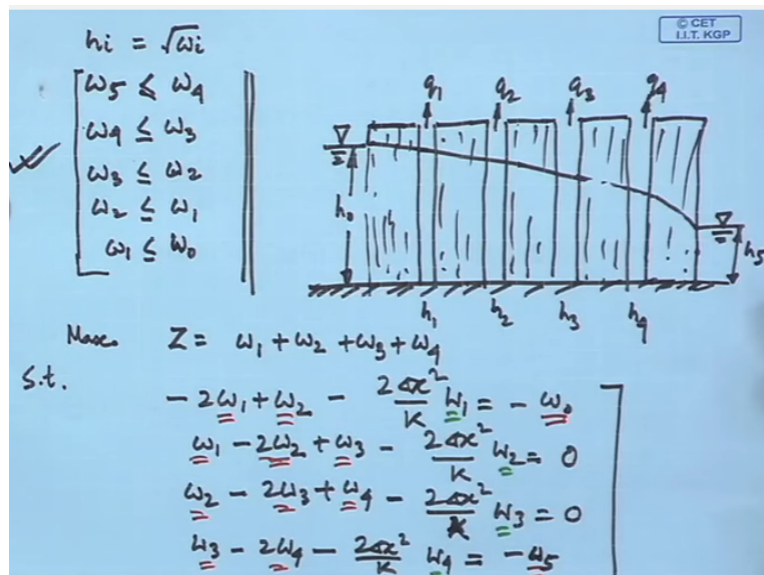 hi = √ωi
© CET
I.I.T. KGP
ω5 ≤ ω4
ω4 ≤ ω3
ω3 ≤ ω2
ω2 ≤ ω1
ω1 ≤ ω0
q1 q2 q3 q4
h0
h5
h1 h2 h3 h4
Max. Z = ω1 + ω2 + ω3 + ω4
S.t.
- 2ω1 + ω2 - 2Δx²/K W1 = - ω0
ω1 - 2ω2 + ω3 - 2Δx²/K W2 = 0
ω2 - 2ω3 + ω4 - 2Δx²/K W3 = 0
ω3 - 2ω4 - 2Δx²/K W4 = - ω5